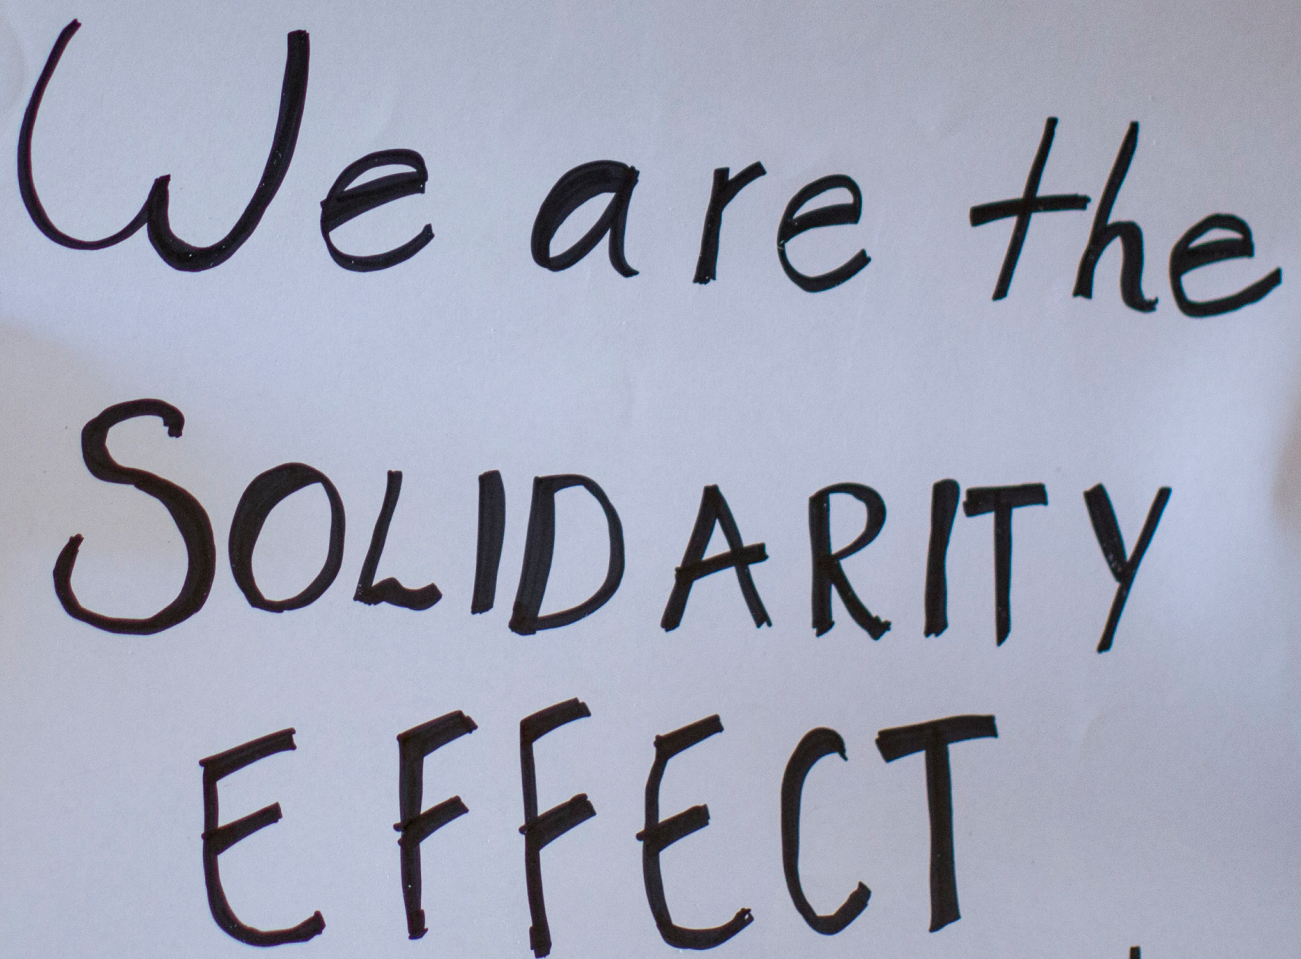 We are the
SOLIDARITY
EFFECT